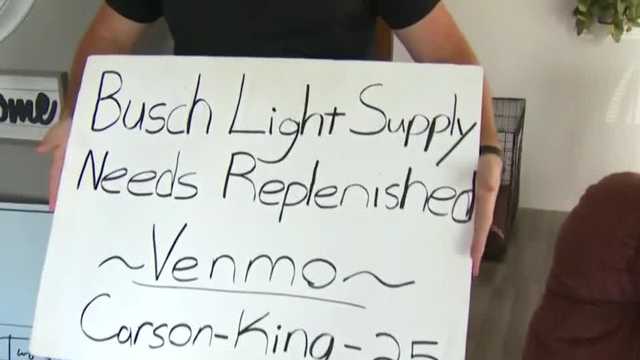 Busch Light Supply
Needs Replenished
~Venmo~
Carson-King-25
ome